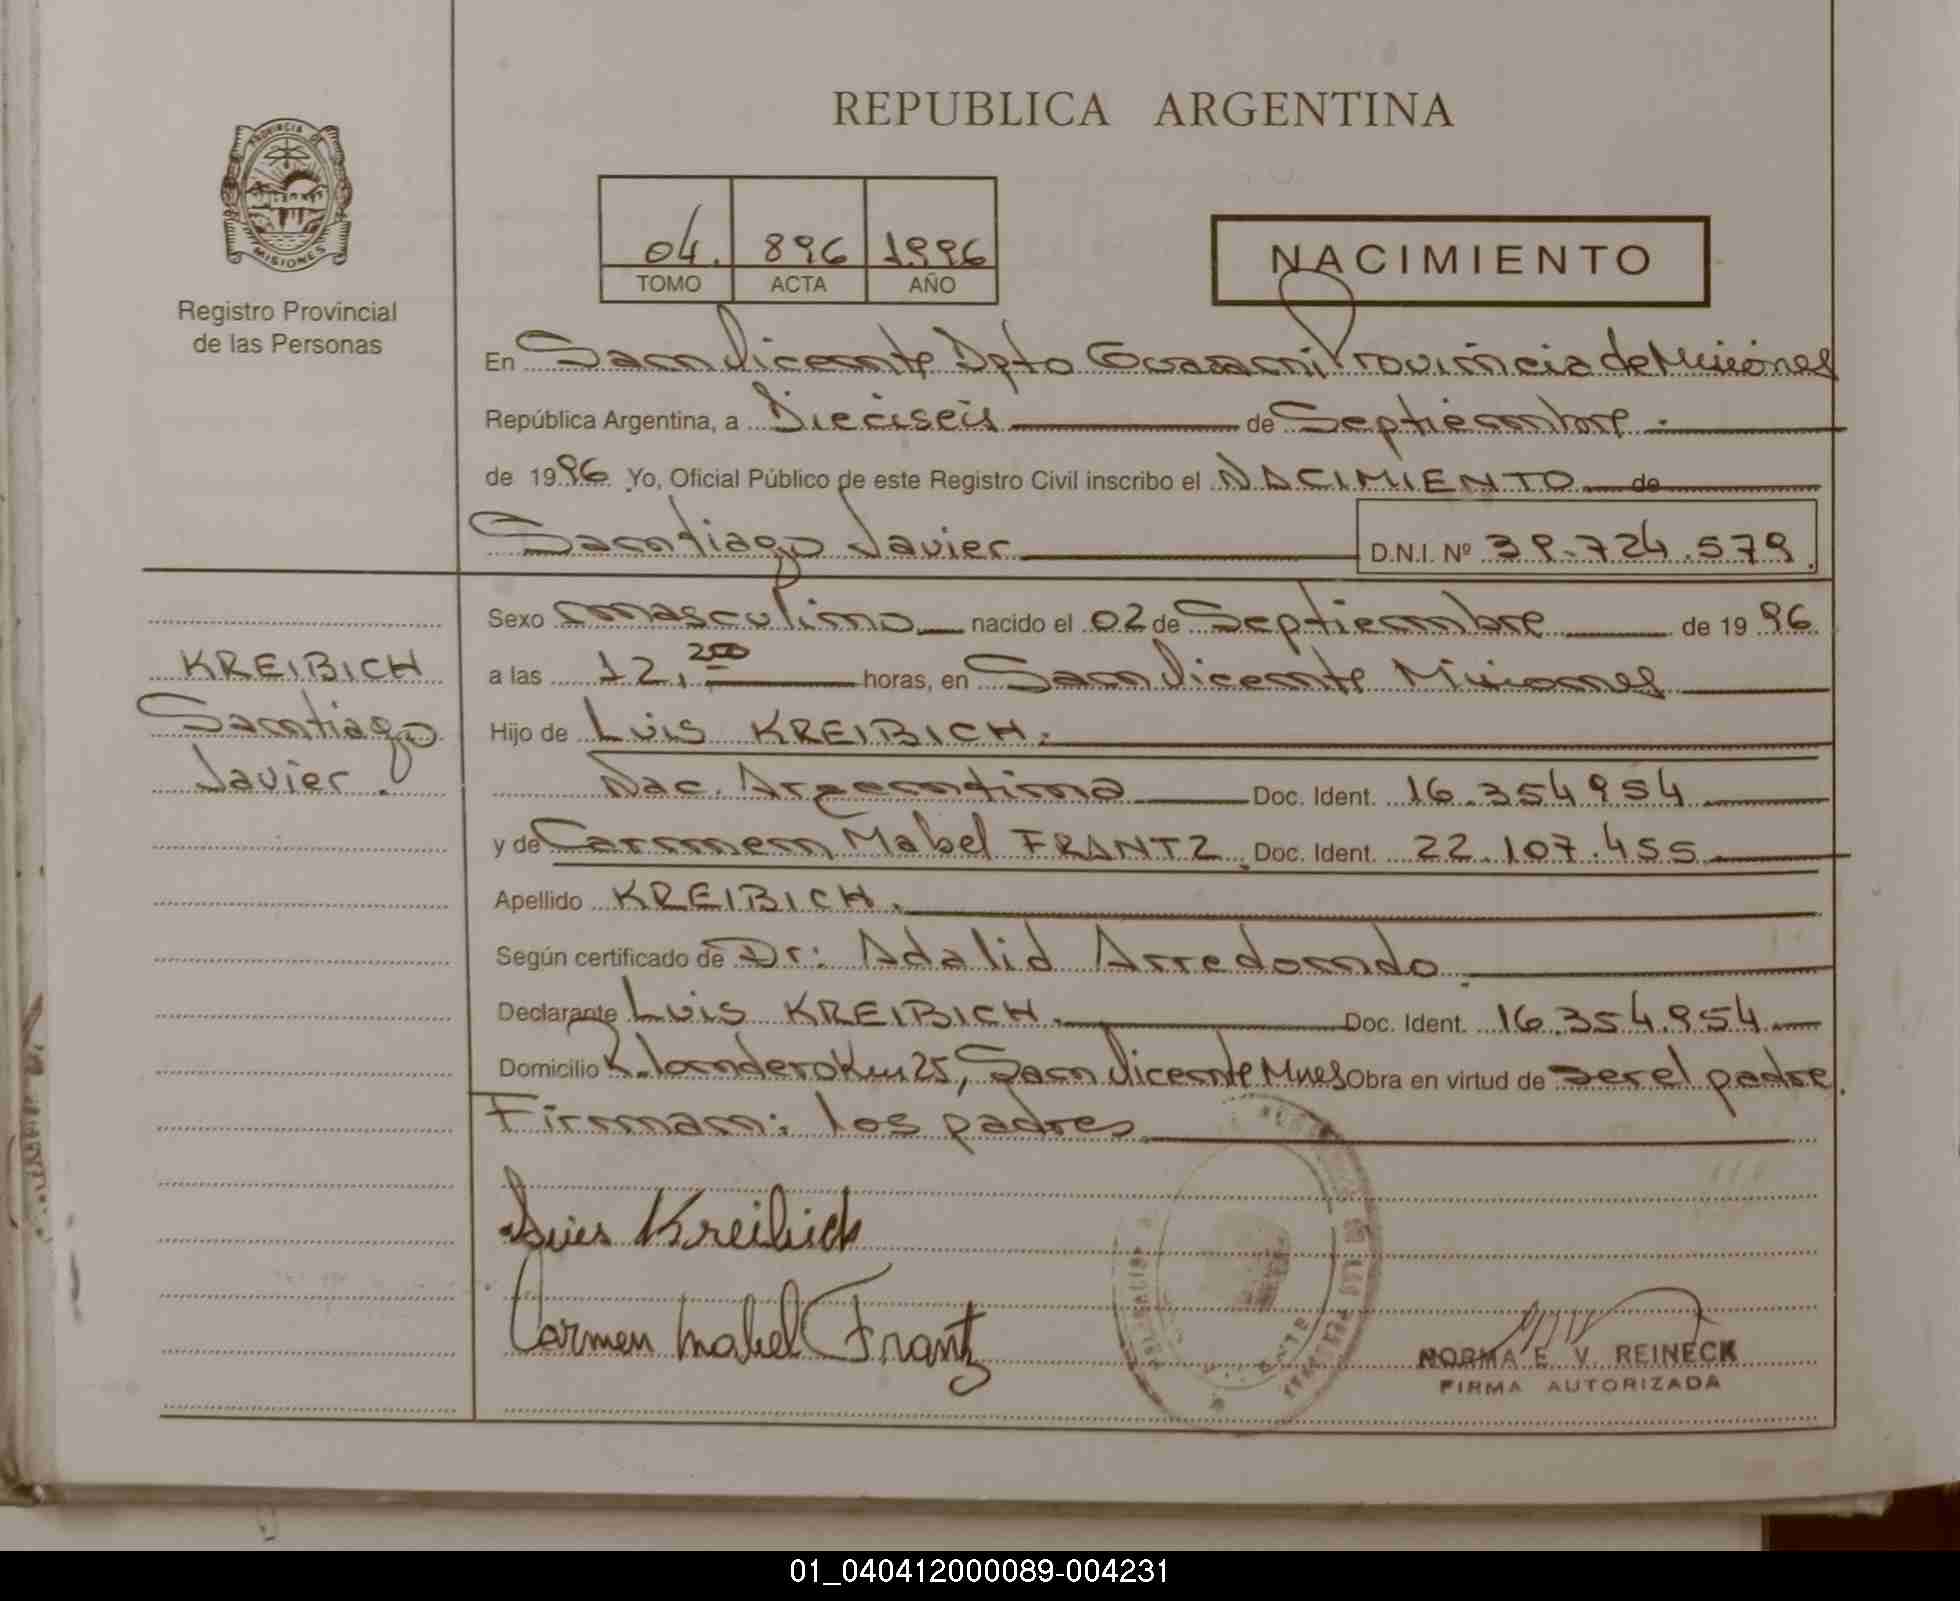 REPUBLICA ARGENTINA
PROVINCIA DE
MISIONES
Registro Provincial
de las Personas
04. 896 1996
TOMO ACTA AÑO
NACIMIENTO
En San Vicente Dpto Guarani Provincia de Misiones
República Argentina, a Dieciseis de Septiembre.
de 1996 Yo, Oficial Público de este Registro Civil inscribo el NACIMIENTO de
Santiago Javier D.N.I. Nº 39.724.579
KREIBICH
Santiago
Javier.
Sexo masculino nacido el 02 de Septiembre de 1996
a las 12, horas, en San Vicente Misiones
Hijo de Luis KREIBICH.
Nac. Argentina Doc. Ident. 16.354954
y de Carmen Mabel FRANTZ. Doc. Ident. 22.107.455
Apellido KREIBICH.
Según certificado de Dr: Adalid Arredondo.
Declarante Luis KREIBICH. Doc. Ident. 16.354.954
Domicilio Km 25, San Vicente Mnes Obra en virtud de ser el padre.
Firman: los padres
Luis Kreibich
Carmen Mabel Frantz
NORMA E. V. REINECK
FIRMA AUTORIZADA
01_040412000089-004231